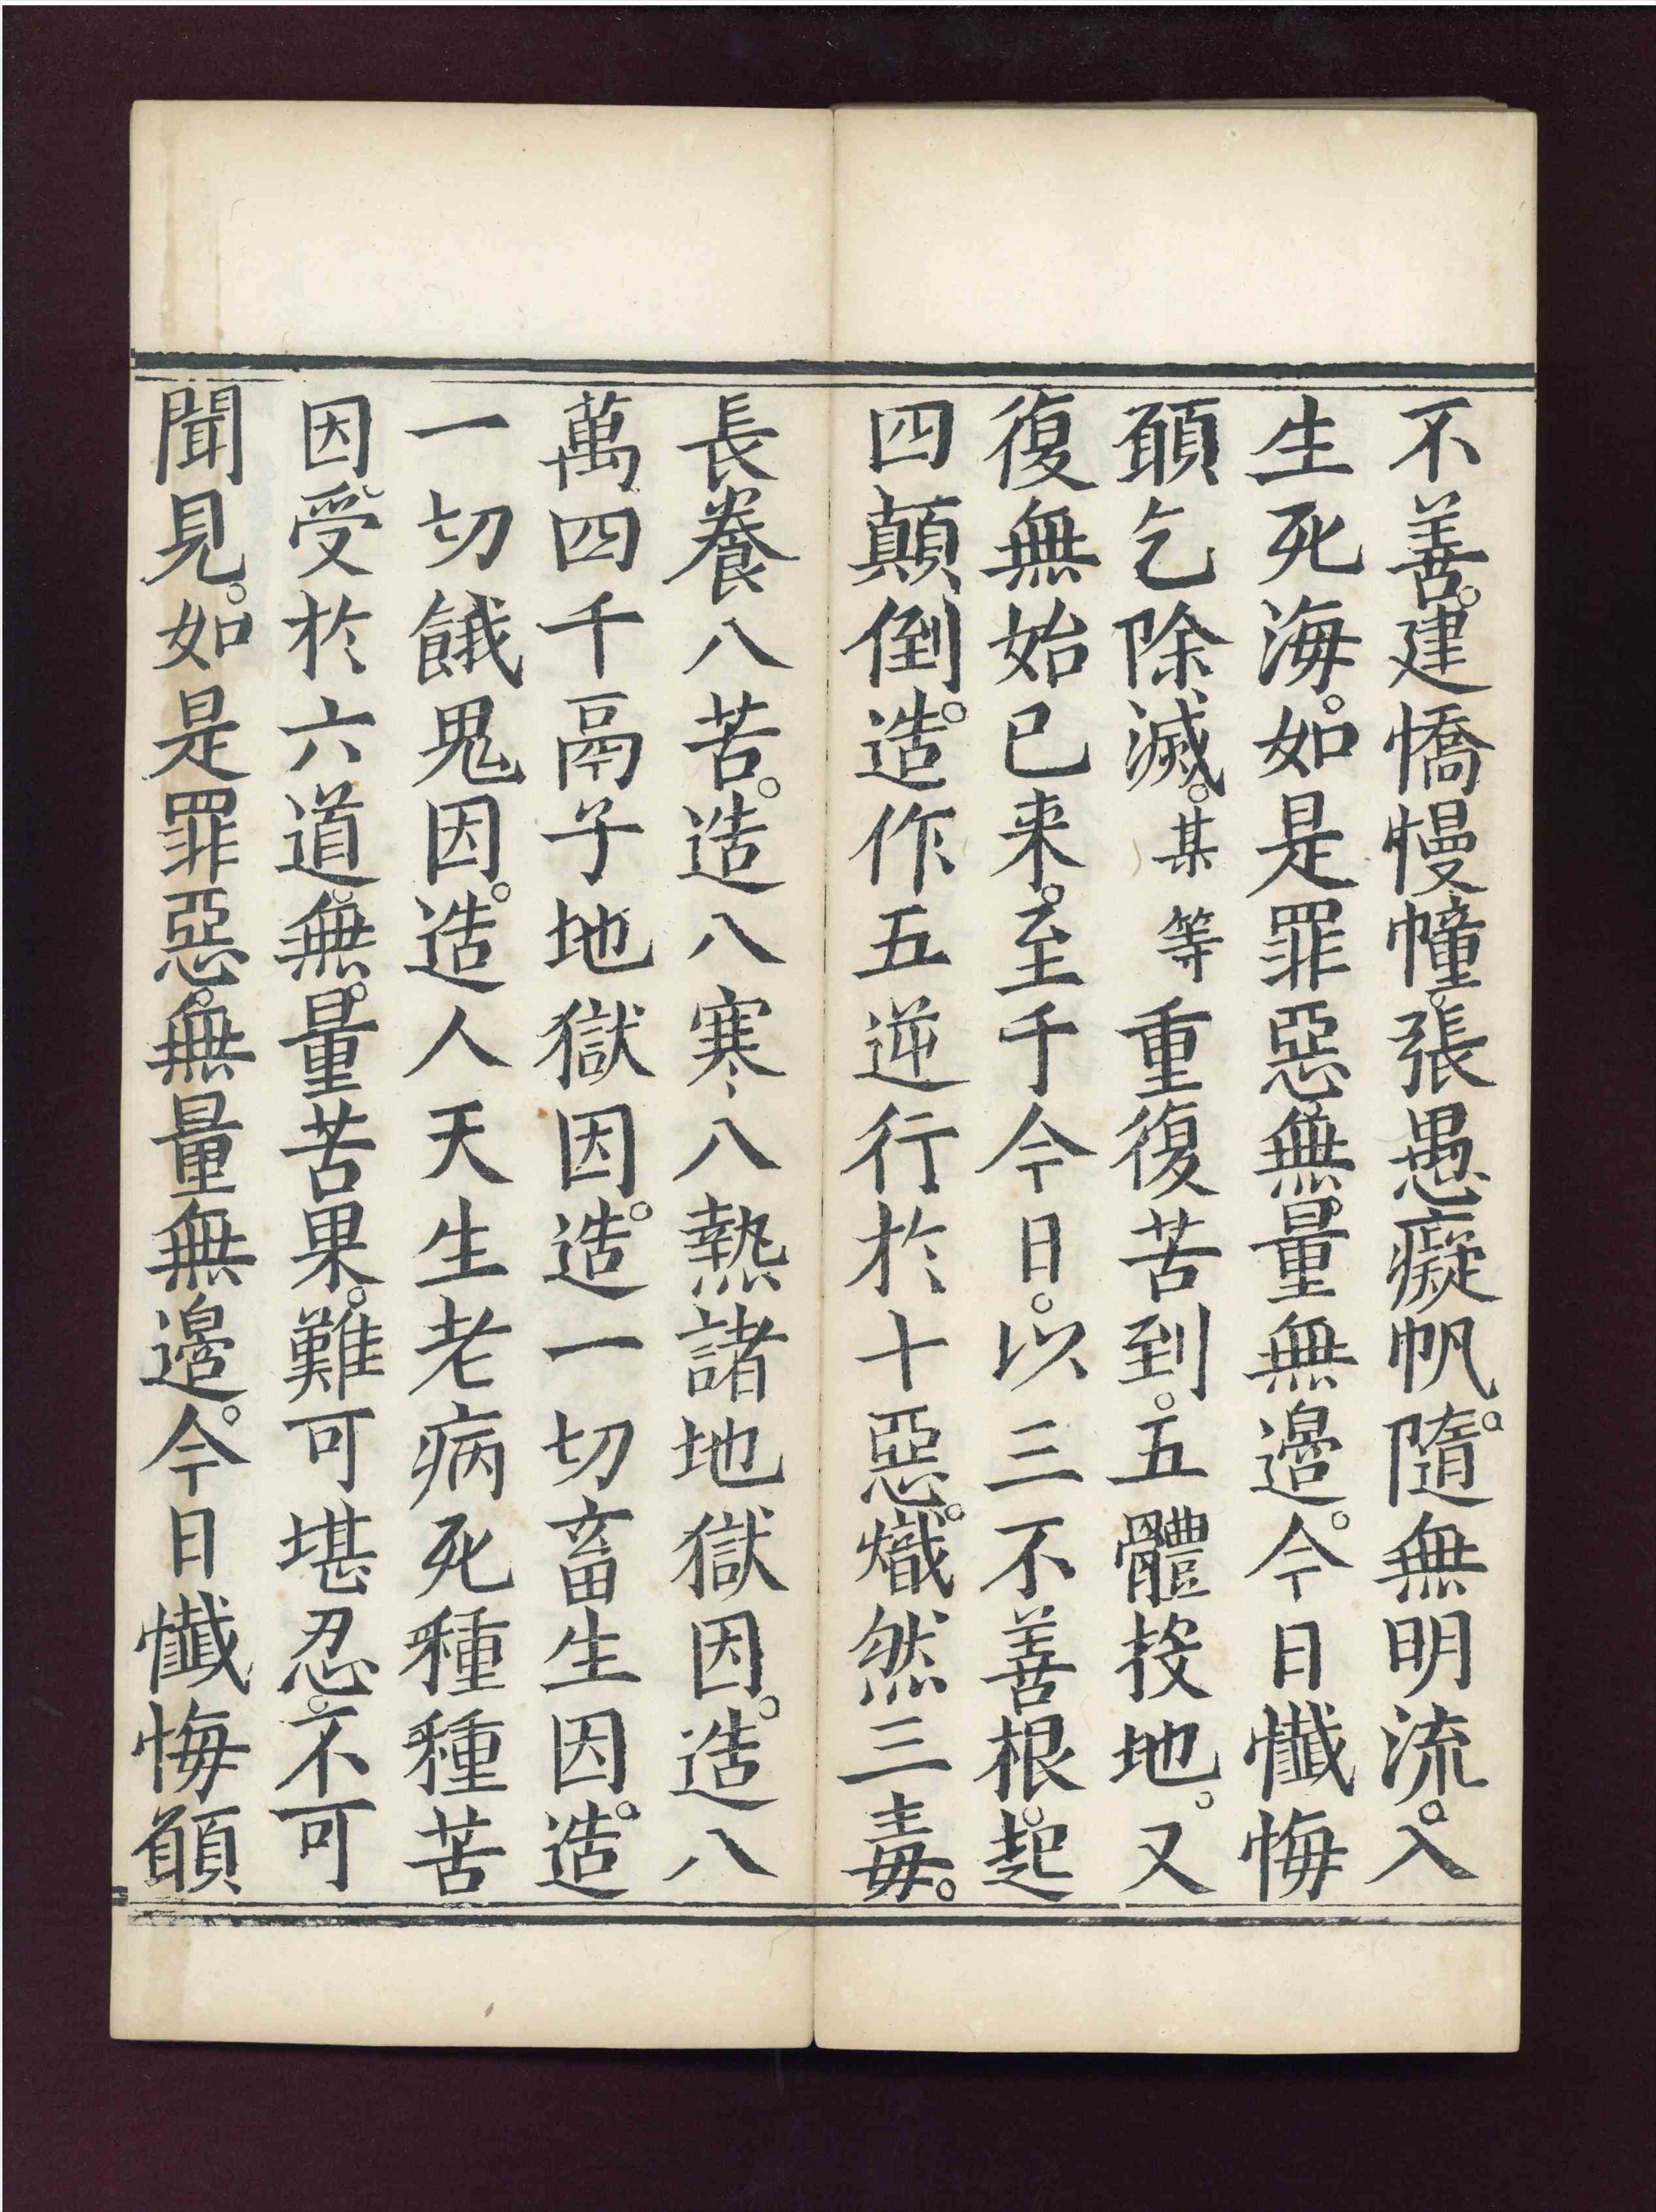 不善。建憍慢幢。張愚癡帆。隨無明流。入
生死海。如是罪惡無量無邊。今日懺悔
願乞除滅。某等重復苦到。五體投地。又
復無始已来。至于今日。以三不善根。起
四顛倒。造作五逆行於十惡。熾然三毒。
長養八苦。造八寒八熱諸地獄因。造八
萬四千鬲子地獄因。造一切畜生因。造
一切餓鬼因。造人天生老病死種種苦
因。受於六道無量苦果。難可堪忍。不可
聞見。如是罪惡。無量無邊。今日懺悔願